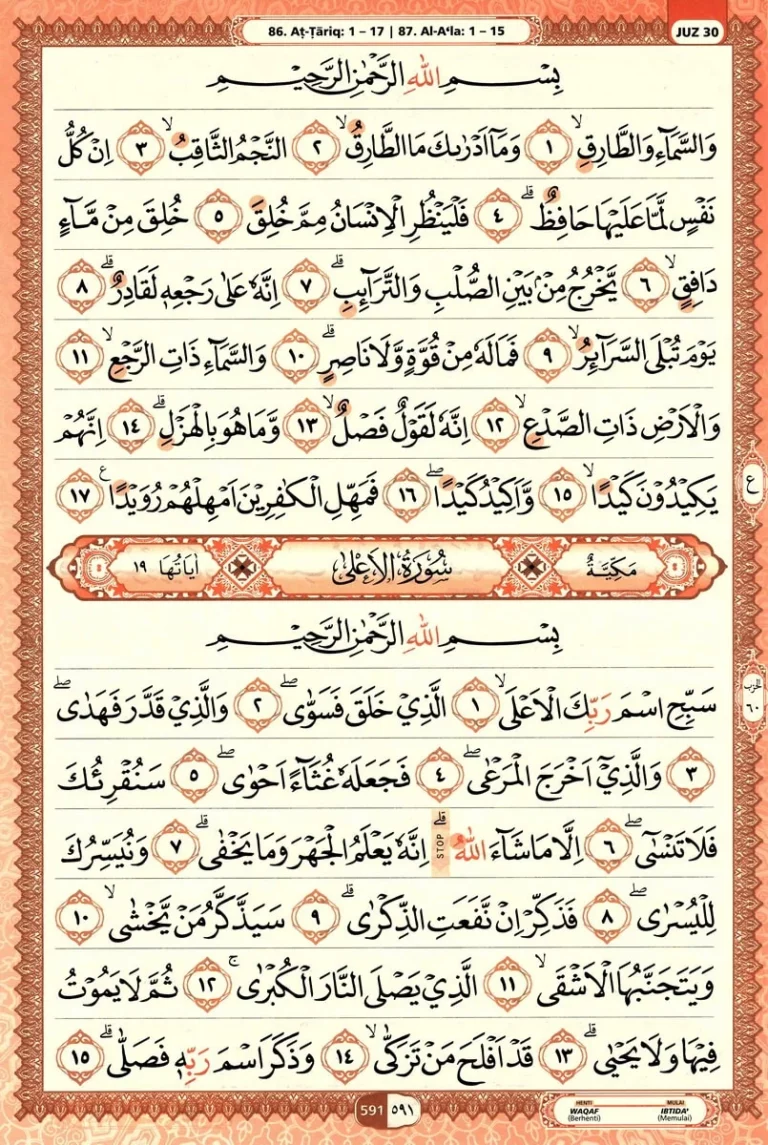 86. Aṭ-Ṭāriq: 1 – 17 | 87. Al-A‘la: 1 – 15
JUZ 30
بِسْمِ اللّٰهِ الرَّحْمٰنِ الرَّحِيْمِ
وَالسَّمَاۤءِ وَالطَّارِقِۙ ١ وَمَآ اَدْرٰىكَ مَا الطَّارِقُۙ ٢ النَّجْمُ الثَّاقِبُۙ ٣ اِنْ كُلُّ
نَفْسٍ لَّمَّا عَلَيْهَا حَافِظٌۗ ٤ فَلْيَنْظُرِ الْاِنْسَانُ مِمَّ خُلِقَ ٥ خُلِقَ مِنْ مَّاۤءٍ
دَافِقٍۙ ٦ يَّخْرُجُ مِنْۢ بَيْنِ الصُّلْبِ وَالتَّرَاۤىِٕبِۗ ٧ اِنَّهٗ عَلٰى رَجْعِهٖ لَقَادِرٌۗ ٨
يَوْمَ تُبْلَى السَّرَاۤىِٕرُۙ ٩ فَمَا لَهٗ مِنْ قُوَّةٍ وَّلَا نَاصِرٍۗ ١٠ وَالسَّمَاۤءِ ذَاتِ الرَّجْعِۙ ١١
وَالْاَرْضِ ذَاتِ الصَّدْعِۙ ١٢ اِنَّهٗ لَقَوْلٌ فَصْلٌۙ ١٣ وَّمَا هُوَ بِالْهَزْلِۗ ١٤ اِنَّهُمْ
يَكِيْدُوْنَ كَيْدًاۙ ١٥ وَّاَكِيْدُ كَيْدًاۖ ١٦ فَمَهِّلِ الْكٰفِرِيْنَ اَمْهِلْهُمْ رُوَيْدًا ࣖ ١٧
ع
مَكِّيَّةٌ سُوْرَةُ الْاَعْلٰى اٰيَاتُهَا ١٩
بِسْمِ اللّٰهِ الرَّحْمٰنِ الرَّحِيْمِ
سَبِّحِ اسْمَ رَبِّكَ الْاَعْلَىۙ ١ الَّذِيْ خَلَقَ فَسَوّٰىۖ ٢ وَالَّذِيْ قَدَّرَ فَهَدٰىۖ
الحزب ٦٠
٣ وَالَّذِيْٓ اَخْرَجَ الْمَرْعٰىۖ ٤ فَجَعَلَهٗ غُثَاۤءً اَحْوٰىۖ ٥ سَنُقْرِئُكَ
فَلَا تَنْسٰىٓۖ ٦ اِلَّا مَا شَاۤءَ اللّٰهُۗ STOP اِنَّهٗ يَعْلَمُ الْجَهْرَ وَمَا يَخْفٰىۗ ٧ وَنُيَسِّرُكَ
لِلْيُسْرٰىۖ ٨ فَذَكِّرْ اِنْ نَّفَعَتِ الذِّكْرٰىۗ ٩ سَيَذَّكَّرُ مَنْ يَّخْشٰىۙ ١٠
وَيَتَجَنَّبُهَا الْاَشْقَىۙ ١١ الَّذِيْ يَصْلَى النَّارَ الْكُبْرٰىۚ ١٢ ثُمَّ لَا يَمُوْتُ
فِيْهَا وَلَا يَحْيٰىۗ ١٣ قَدْ اَفْلَحَ مَنْ تَزَكّٰىۙ ١٤ وَذَكَرَ اسْمَ رَبِّهٖ فَصَلّٰىۗ ١٥
591 ٥٩١
HENTI WAQAF (Berhenti)
MULAI IBTIDA’ (Memulai)